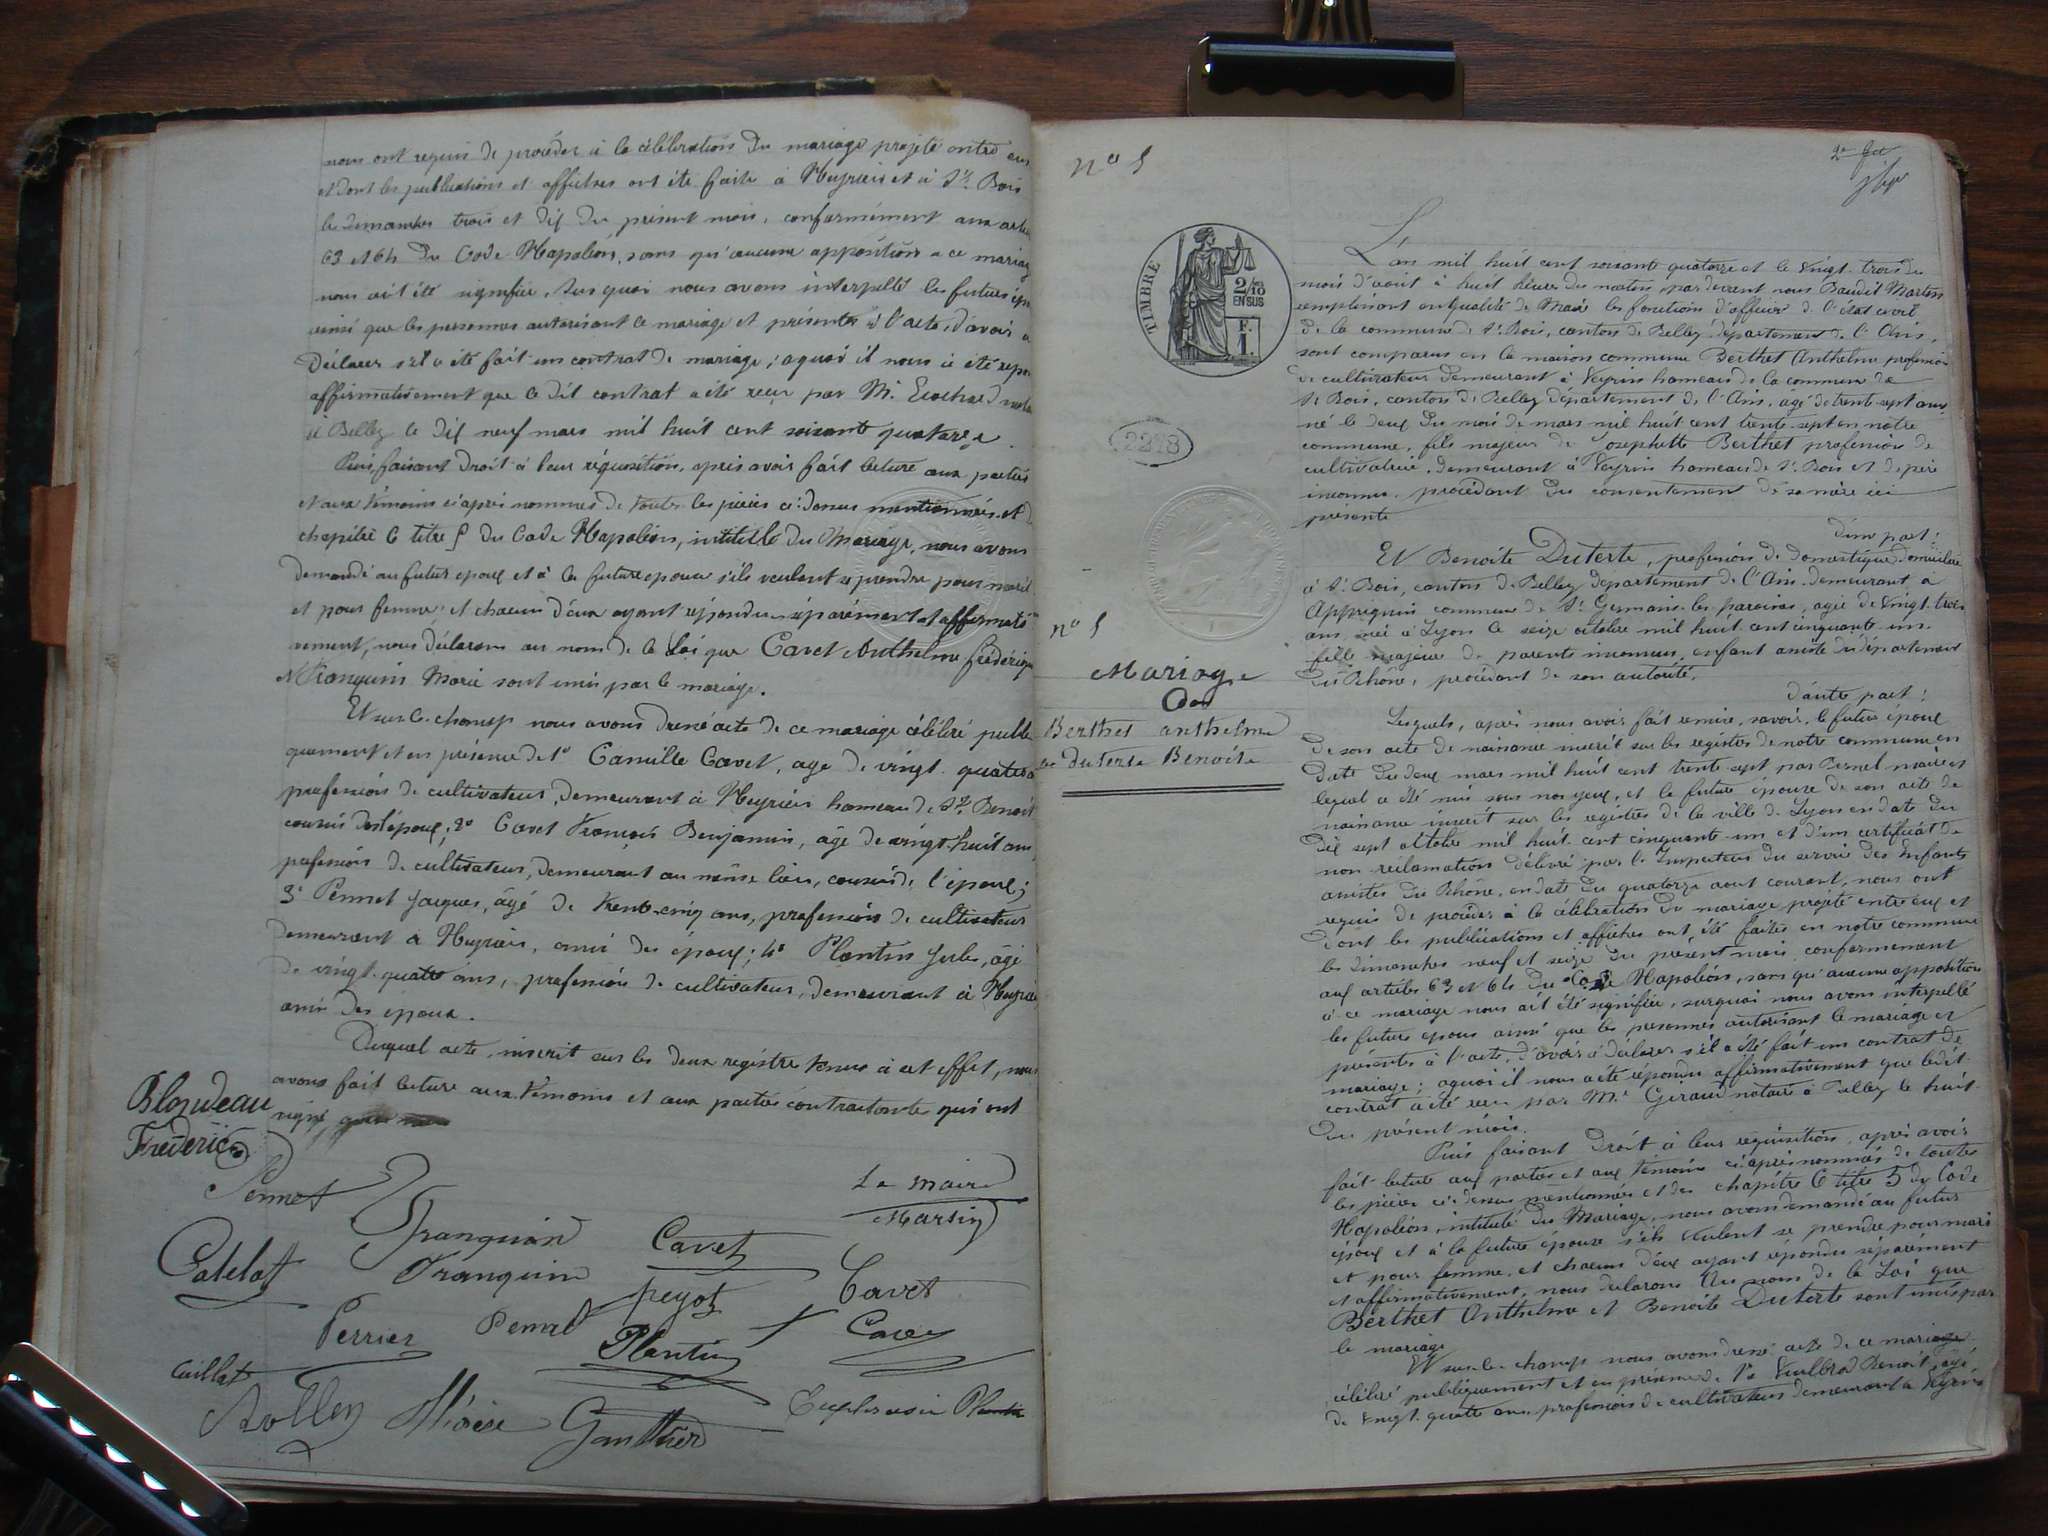 nous ont requis de procéder à la célébration du mariage projeté entre eux
et dont les publications et affiches ont été faite à Meyrieu et à St. Bois
le dimanches trois et dix du présent mois, conformément aux
63 et 64 du Code Napoléon, sans qu'aucune opposition a ce mariage
nous ait été signifiée. Sur quoi nous avons interpellé les futurs
ainsi que les personnes autorisant le mariage et présentes à l'acte, d'avoir a
Déclarer s'il a été fait un contrat de mariage; aquoi il nous a été
affirmativement que le dit contrat a été reçu par M.
à Belley le dix neuf mars mil huit cent soixante quatorze.
Puis, faisant droit à leur réquisition, après avoir fait lecture aux parties
et aux témoins ci-après nommés de toutes les pièces ci-dessus mentionnées et
chapitre 6 titre 5 du Code Napoléon, intitulé du Mariage, nous avons
demandé au futur époux et à la future épouse s'ils veulent se prendre pour mari
et pour femme; et chacun d'eux ayant répondu séparément et affirmati
vement, nous déclarons au nom de la Loi que Cavet Anthelme frédérique
et Tranquin Marie sont unis par le mariage.
Et sur le champ nous avons dressé acte de ce mariage célébré publi
quement et en présence de 1° Camille Cavet, age de vingt quatre
profession de cultivateur, demeurant à Meyrieu hameau de St. Benoit
cousin de l'époux; 2° Cavet François Benjamin, âgé de vingt huit ans
profession de cultivateur, demeurant au même lieu, cousin de l'époux;
3° Pennet Jacques, âgé de trente-cinq ans, profession de cultivateur
demeurant à Meyrieu, ami des époux; 4° Plantin Jules, âgé
de vingt-quatre ans, profession de cultivateur, demeurant à Meyrieu
ami des époux.
Duquel acte, inscrit sur les deux registre tenus à cet effet, nous
avons fait lecture aux témoins et aux parties contractante qui ont
signé
Blondeau
Frédéric
Pennet
Le maire
Martin
Tranquin
Cavet
Catelat
Tranquin
peyot
Cavet
Perrier
Pennet
Plantin
Cavet
Caillat
Rolley
Gauthier
Euphrasie Plantin
n° 5
TIMBRE
2/10
EN SUS
F.
I.
2218
n° 5
Mariage
De
Berthet anthelme
duterte Benoite
L'an mil huit cent soixante quatorze et le vingt-trois du
mois d'août à huit heures du matin, par devant nous Baudit Martin
remplissant en qualité de Maire les fonctions d'officier de l'état civil
de la commune de St. Bois, canton de Belley département de l'Ain,
sont comparus en la maison commune Berthet Anthelme profession
de cultivateur demeurant à Veyrin hameau de la commune de
St. Bois, canton de Belley département de l'Ain, agé de trente-sept ans
né le deux du mois de mars mil huit cent trente-sept en notre
commune, fils majeur de Josephette Berthet profession de
cultivatrice, demeurant à Veyrin hameau de St. Bois et de père
inconnu, procédant du consentement de sa mère ici
présente
d'une part;
Et Benoite Duterte, profession de domestique domiciliée
à St. Bois, canton de Belley département de l'Ain demeurant à
Appregnin commune de St. Germain-les-paroisses, agée de vingt-trois
ans, née à Lyon le seize octobre mil huit cent cinquante-un.
fille majeure de parents inconnus, enfant assisté du département
du Rhône, procédant de son autorité,
d'autre part;
Lesquels, après nous avoir fait remise, savoir, le futur époux
de son acte de naissance inscrit sur les registres de notre commune en
date du deux mars mil huit cent trente sept par Pernet maire et
lequel a été mis sous nos yeux, et la future épouse de son acte de
naissance inscrit sur les registres de la ville de Lyon en date du
dix sept octobre mil huit cent cinquante-un et d'un certificat de
non réclamation délivré par l'Inspecteur du service des Enfants
assistés du Rhône, en date du quatorze aout courant, nous ont
requis de procéder à la célébration du mariage projeté entre eux et
dont les publications et affiches ont été faites en notre commune
les dimanches neuf et seize du présent mois, conformement
aux articles 63 et 64 du Code Napoléon, sans qu'aucune opposition
à ce mariage nous ait été signifiée, sur quoi nous avons interpellé
les futurs epoux ainsi que les personnes autorisant le mariage et
présentes à l'acte, d'avoir à déclarer s'il a été fait un contrat de
mariage; aquoi il nous a été répondu affirmativement que ledit
contrat a été reçu par Me Giraud notaire à Belley le huit
du présent mois.
Puis faisant droit à leur réquisition, après avoir
fait lecture aux parties et aux témoins ci-après nommés de toutes
les pièces ci-dessus mentionnées et du chapitre 6 titre 5 du Code
Napoléon, intitulé du Mariage, nous avons demandé au futur
époux et à la future épouse s'ils veulent se prendre pour mari
et pour femme, et chacun d'eux ayant répondu séparément
et affirmativement, nous déclarons Au nom de la Loi que
Berthet Anthelme et Benoite Duterte sont unis par
le mariage
Et sur-le-champ nous avons dressé acte de ce mariage
célébré publiquement et en présence de 1° Benoit, agé
de vingt-quatre ans profession de cultivateur demeurant à Veyrin